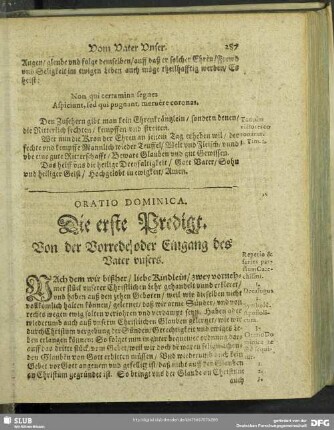 Vom Vater Vnser. 287
Augen/ glaube vnd folge demselben/ auff daß er solcher Ehren/ Frewd
vnd Seligkeit im ewigen Leben auch möge theilhafftig werden/ Es
heist:
Non qui certamina segnes
Aspiciunt, sed qui pugnant, meruêre coronas.
Den Zusehern gibt man kein Ehrenkräntzlein/ sondern denen/
die Ritterlich fechten/ kempffen vnd streiten.
Wer nun die Kron der Ehren an jenem Tag erheben wil/ der
fechte vnd kempffe Mannlich wieder Teuffel/ Welt vnd Fleisch/ vnnd
vbe eine gute Ritterschafft/ Beware Glauben vnd gut Gewissen.
Das helff vns die heilige Dreyfaltigkeit/ Gott Vater/ Sohn
vnd heiliger Geist/ Hochgelobt in ewigkeit/ Amen.
ORATIO DOMINICA.
Die erste Predigt.
Von der Vorrede/ oder Eingang des
Vater vnsers.
NAch dem wir bißher/ liebe Kindlein/ zwey vorneh-
mer stück vnserer Christlichen lehr gehandelt vnd erkleret/
vnd haben auß den zehen Geboten/ weil wir dieselben nicht
vollkömlich halten können/ gelernet/ daß wir arme Sünder/ vnd von
rechts wegen ewig solten verlohren vnd verdampt seyn. Haben aber
wiederumb auch auß vnserm Christlichen Glauben gelernet/ wie wir
durch Christum vergebung der Sünden/ Gerechtigkeit vnd ewiges le-
ben erlangen können: So folget nun in guter bequemer ordnung hier-
auff das dritte stück/ vom Gebet/
den Glauben von Gott erbitten müssen/ Vnd wiederumb auch kein
Gebet vor Gott angenem vnd gefellig ist/ daß nicht auß den Glauben
an Christum gegründet ist. So bringt vns der Glaube an Christum
auch
SLUB
Wir führen Wissen.
Gefördert von der
Deutschen Forschungsgemeinschaft
DFG